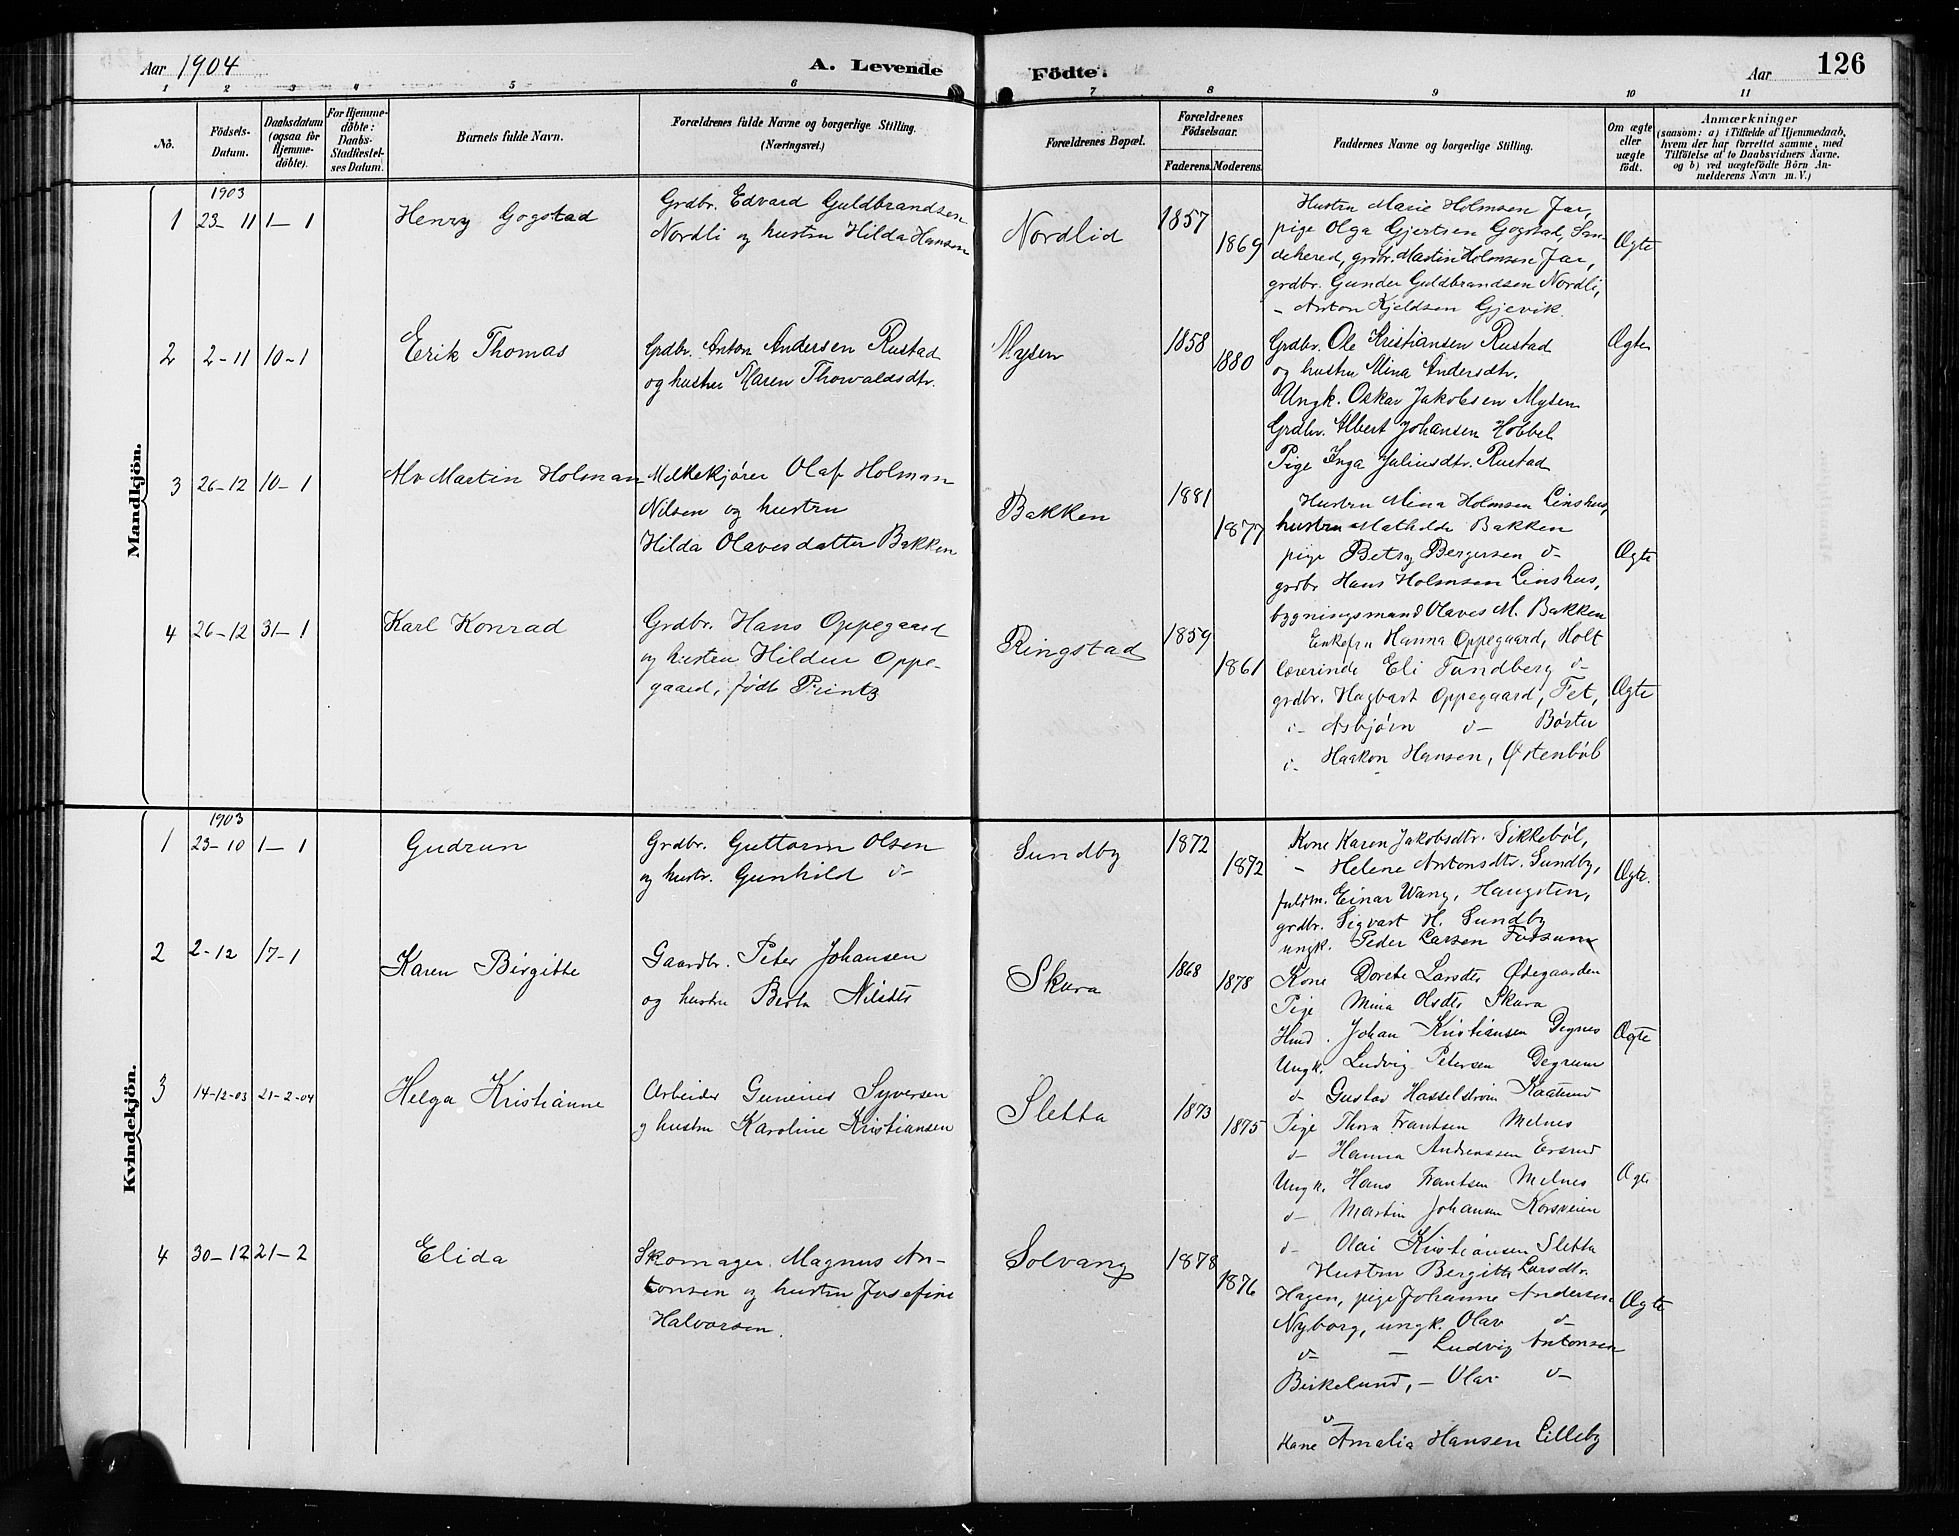 Aar 1904
A. Levende
Födte.
Aar
126
1 2 3 4 5 6 7 8 9 10 11
No.
Födsels-
Datum.
Daabsdatum
(ogsaa for
Hjemme-
döbte).
For Hjemme-
döbte:
Daabs-
Stadfæstel-
ses Datum.
Barnets fulde Navn.
Forældrenes fulde Navne og borgerlige Stilling.
(Næringsvei.)
Forældrenes Bopæl.
Forældrenes
Födselsaar.
Faderens. Moderens.
Faddernes Navne og borgerlige Stilling.
Om ægte
eller
uægte
födt.
Anmærkninger
(saasom: a) i Tilfælde af Hjemmedaab,
hvem der har forrettet samme, med
Tilföielse af to Daabsvidners Navne.
og b) ved uægtefödte Börn An-
melderens Navn m. V.)
Mandkjön.
1903
1 23-11 1-1
Henry Gogstad
Grdbr. Edvard Guldbrandsen
Nordli og hustru Hilda Hansen
Nordlid
1857
1869
Hustru Marie Holmsen Jar,
pige Olga Gjertsen Gogstad, San-
dehered, grdbr. Martin Holmsen Jar,
grdbr. Gunder Guldbrandsen Nordli,
- Anton Kjeldsen Gjevik.
Ægte
2 2-11 10-1
Erik Thomas
Grdbr. Anton Andersen Rustad
og hustru Maren Thowaldsdtr.
Mysen
1858
1880
Grdbr. Ole Kristiansen Rustad
og hustru Mina Andersdtr.
Ungk. Oskar Jakobsen Mysen
Grdbr. Albert Johansen Hobbel
Pige Inga Juliusdtr. Rustad
Ægte
3 26-12 10-1
Alv Martin Holman
Melkekjører Olaf Holman
Nilsen og hustru
Hilda Olavesdatter Bakken
Bakken
1881
1877
Hustru Mina Holmsen Linshus,
hustru Mathilde Bakken
pige Betsy Bergersen d-
grdbr Hans Holmsen Linshus,
bygningsmand Olaves M. Bakken
Ægte
4 26-12 31-1
Karl Konrad
Grdbr. Hans Oppegaard
og hustru Hildur Oppe-
gaard, født Printz
Ringstad
1859
1861
Enkefru Hanna Oppegaard, Holt
lærerinde Eli Tandberg d-
grdbr. Hagbart Oppegaard, Fet,
d- Asbjørn d- Børter
d- Haakon Hansen, Østenbøl
Ægte
Kvindekjön.
1903
1 23-10 1-1
Gudrun
Grdbr. Guttorm Olsen
og hustr. Gunhild d-
Sundby
1872
1872
Kone Karen Jakobsdtr. Sikkebøl,
- Helene Antonsdtr. Sundby,
fuldm. Einar Wang, Haugsten,
grdbr. Sigvart H. Sundby
ungk. Peder Larsen Fossum
Ægte.
2 2-12 17-1
Karen Birgitte
Gaardbr. Peter Johansen
og hustru Berta Nilsdtr
Skara
1868
1878
Kone Dorete Larsdtr Ødegaarden
Pige Mina Olsdtr Skara
Hmd. Johan Kristiansen Degnes
Ungk. Ludvig Petersen Degrum
d- Gustav Hasselstrøm Kaatund
Ægte
3 14-12-03 21-2-04
Helga Kristianne
Arbeider Gunerius Syversen
og hustru Karoline Kristiansen
Sletta
1873
1875
Pige Thora Frantsen Melnes
d- Hanna Andreassen Ersrud
Ungk. Hans Frantsen Melnes
d- Martin Johansen Korsveien
d- Olai Kristiansen Sletta
Ægte
4 30-12 21-2
Elida
Skomager Magnus An-
tonsen og hustru Josefine
Halvorsen.
Solvang
1878
1876
Hustru Bergitte Larsdtr.
Hagen, pige Johanne Andersen
Nyborg, ungk. Olav d-
d- - Ludvig Antonsen
Birkelund, - Olav d-
d-
Kone Amalia Hansen Lilleby
Ægte